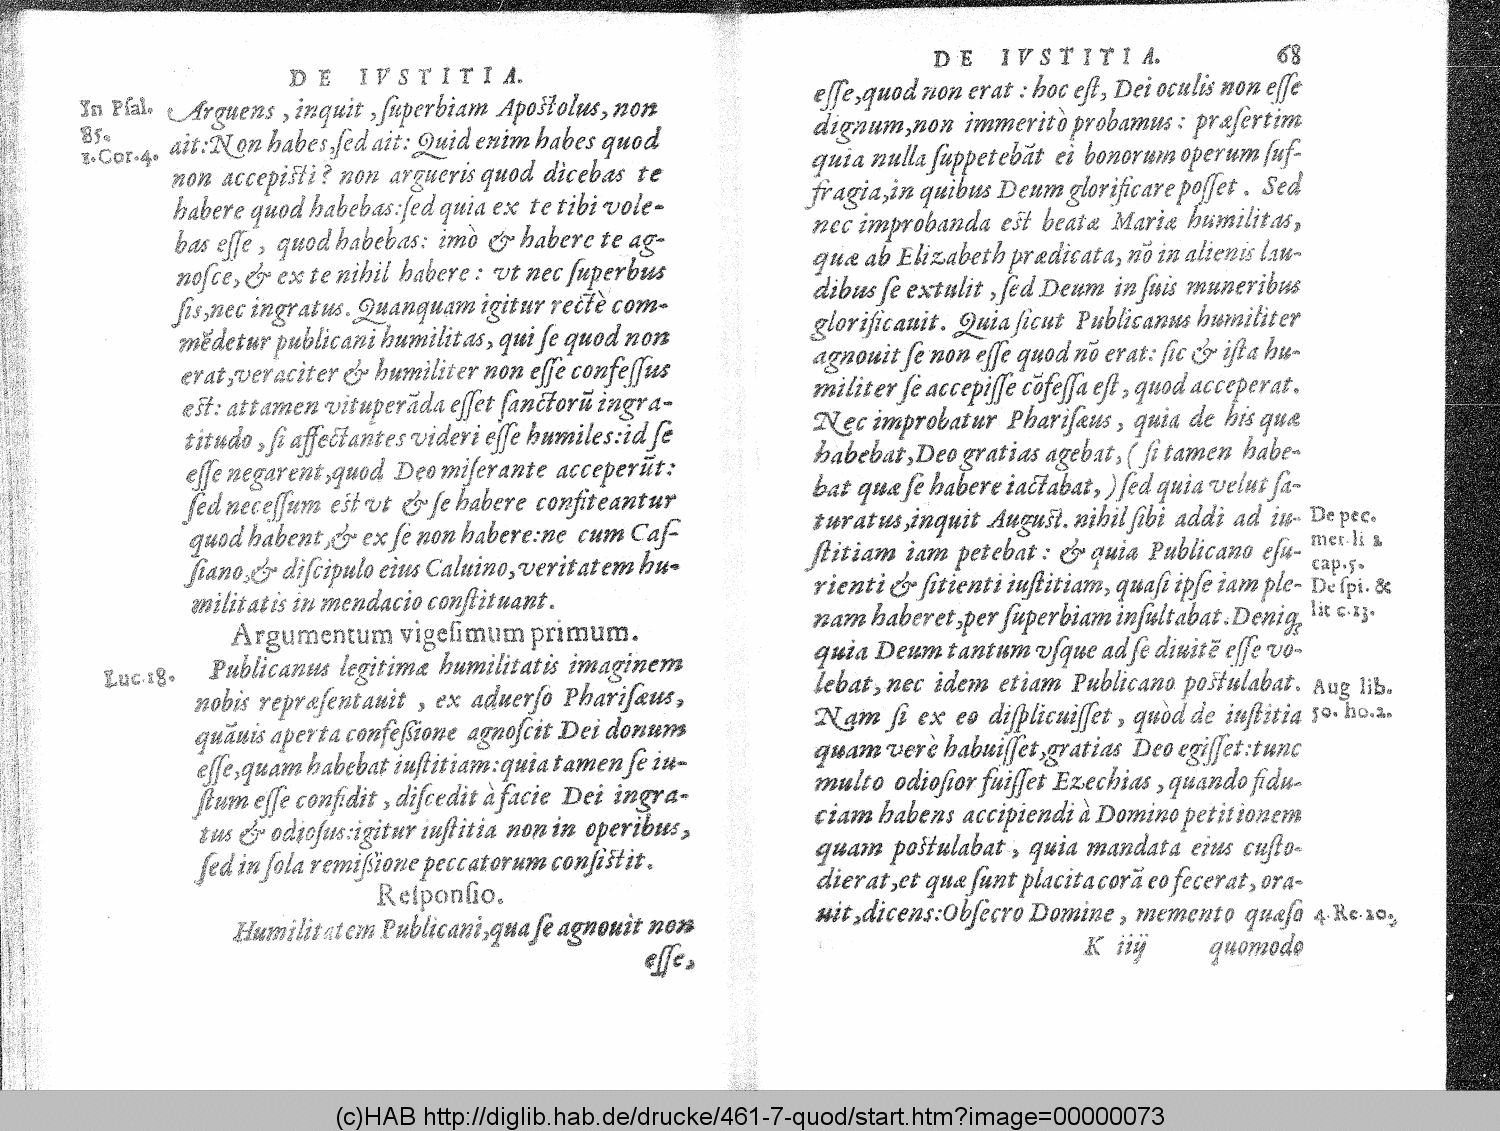 DE IVSTITIA.
In Pſal.
85.
1.Cor.4.
Arguens , inquit , ſuperbiam Apoſtolus, non
ait: Non habes, ſed ait: Quid enim habes quod
non accepiſti? non argueris quod dicebas te
habere quod habebas: ſed quia ex te tibi vole-
bas eſſe , quod habebas: imò & habere te ag-
noſce, & ex te nihil habere : vt nec ſuperbus
ſis, nec ingratus. Quanquam igitur rectè com-
mẽdetur publicani humilitas, qui ſe quod non
erat, veraciter & humiliter non eſſe confeſſus
eſt: attamen vituperãda eſſet ſanctorũ ingra-
titudo , ſi affectantes videri eſſe humiles: id ſe
eſſe negarent, quod Deo miſerante acceperũt:
ſed neceſſum eſt vt & ſe habere confiteantur
quod habent, & ex ſe non habere: ne cum Caſ-
ſiano, & diſcipulo eius Caluino, veritatem hu-
militatis in mendacio conſtituant.
Argumentum vigeſimum primum.
Luc.18.
Publicanus legitimæ humilitatis imaginem
nobis repræſentauit , ex aduerſo Phariſæus,
quãuis aperta confeſſione agnoſcit Dei donum
eſſe, quam habebat iuſtitiam: quia tamen ſe iu-
ſtum eſſe confidit , diſcedit à facie Dei ingra-
tus & odioſus: igitur iuſtitia non in operibus,
ſed in ſola remiſſione peccatorum conſiſtit.
Reſponſio.
Humilitatem Publicani, qua ſe agnouit non
eſſe,
DE IVSTITIA. 68
eſſe, quod non erat : hoc eſt, Dei oculis non eſſe
dignum, non immeritò probamus : præſertim
quia nulla ſuppetebãt ei bonorum operum ſuf-
fragia, in quibus Deum glorificare poſſet . Sed
nec improbanda eſt beatæ Mariæ humilitas,
quæ ab Elizabeth prædicata, nõ in alienis lau-
dibus ſe extulit , ſed Deum in ſuis muneribus
glorificauit. Quia ſicut Publicanus humiliter
agnouit ſe non eſſe quod nõ erat: ſic & iſta hu-
militer ſe accepiſſe cõfeſſa eſt , quod acceperat.
Nec improbatur Phariſæus , quia de his quæ
habebat, Deo gratias agebat, ( ſi tamen habe-
bat quæ ſe habere iactabat, ) ſed quia velut ſa-
turatus, inquit Auguſt. nihil ſibi addi ad iu-
ſtitiam iam petebat : & quia Publicano eſu-
rienti & ſitienti iuſtitiam, quaſi ipſe iam ple-
nam haberet, per ſuperbiam inſultabat. Deniq;
quia Deum tantum vſque ad ſe diuitẽ eſſe vo-
lebat, nec idem etiam Publicano poſtulabat.
Nam ſi ex eo diſplicuiſſet , quòd de iuſtitia
quam verè habuiſſet, gratias Deo egiſſet: tunc
multo odioſior fuiſſet Ezechias , quando fidu-
ciam habens accipiendi à Domino petitionem
quam poſtulabat , quia mandata eius cuſto-
dierat, et quæ ſunt placita corã eo fecerat, ora-
uit, dicens: Obſecro Domine , memento quæſo
De pec.
mer. li 2
cap.5.
De ſpi. &
lit c.13.
Aug lib.
50. ho.2.
4.Re.20.
K iiij quomodo
(c)HAB http://diglib.hab.de/drucke/461-7-quod/start.htm?image=00000073